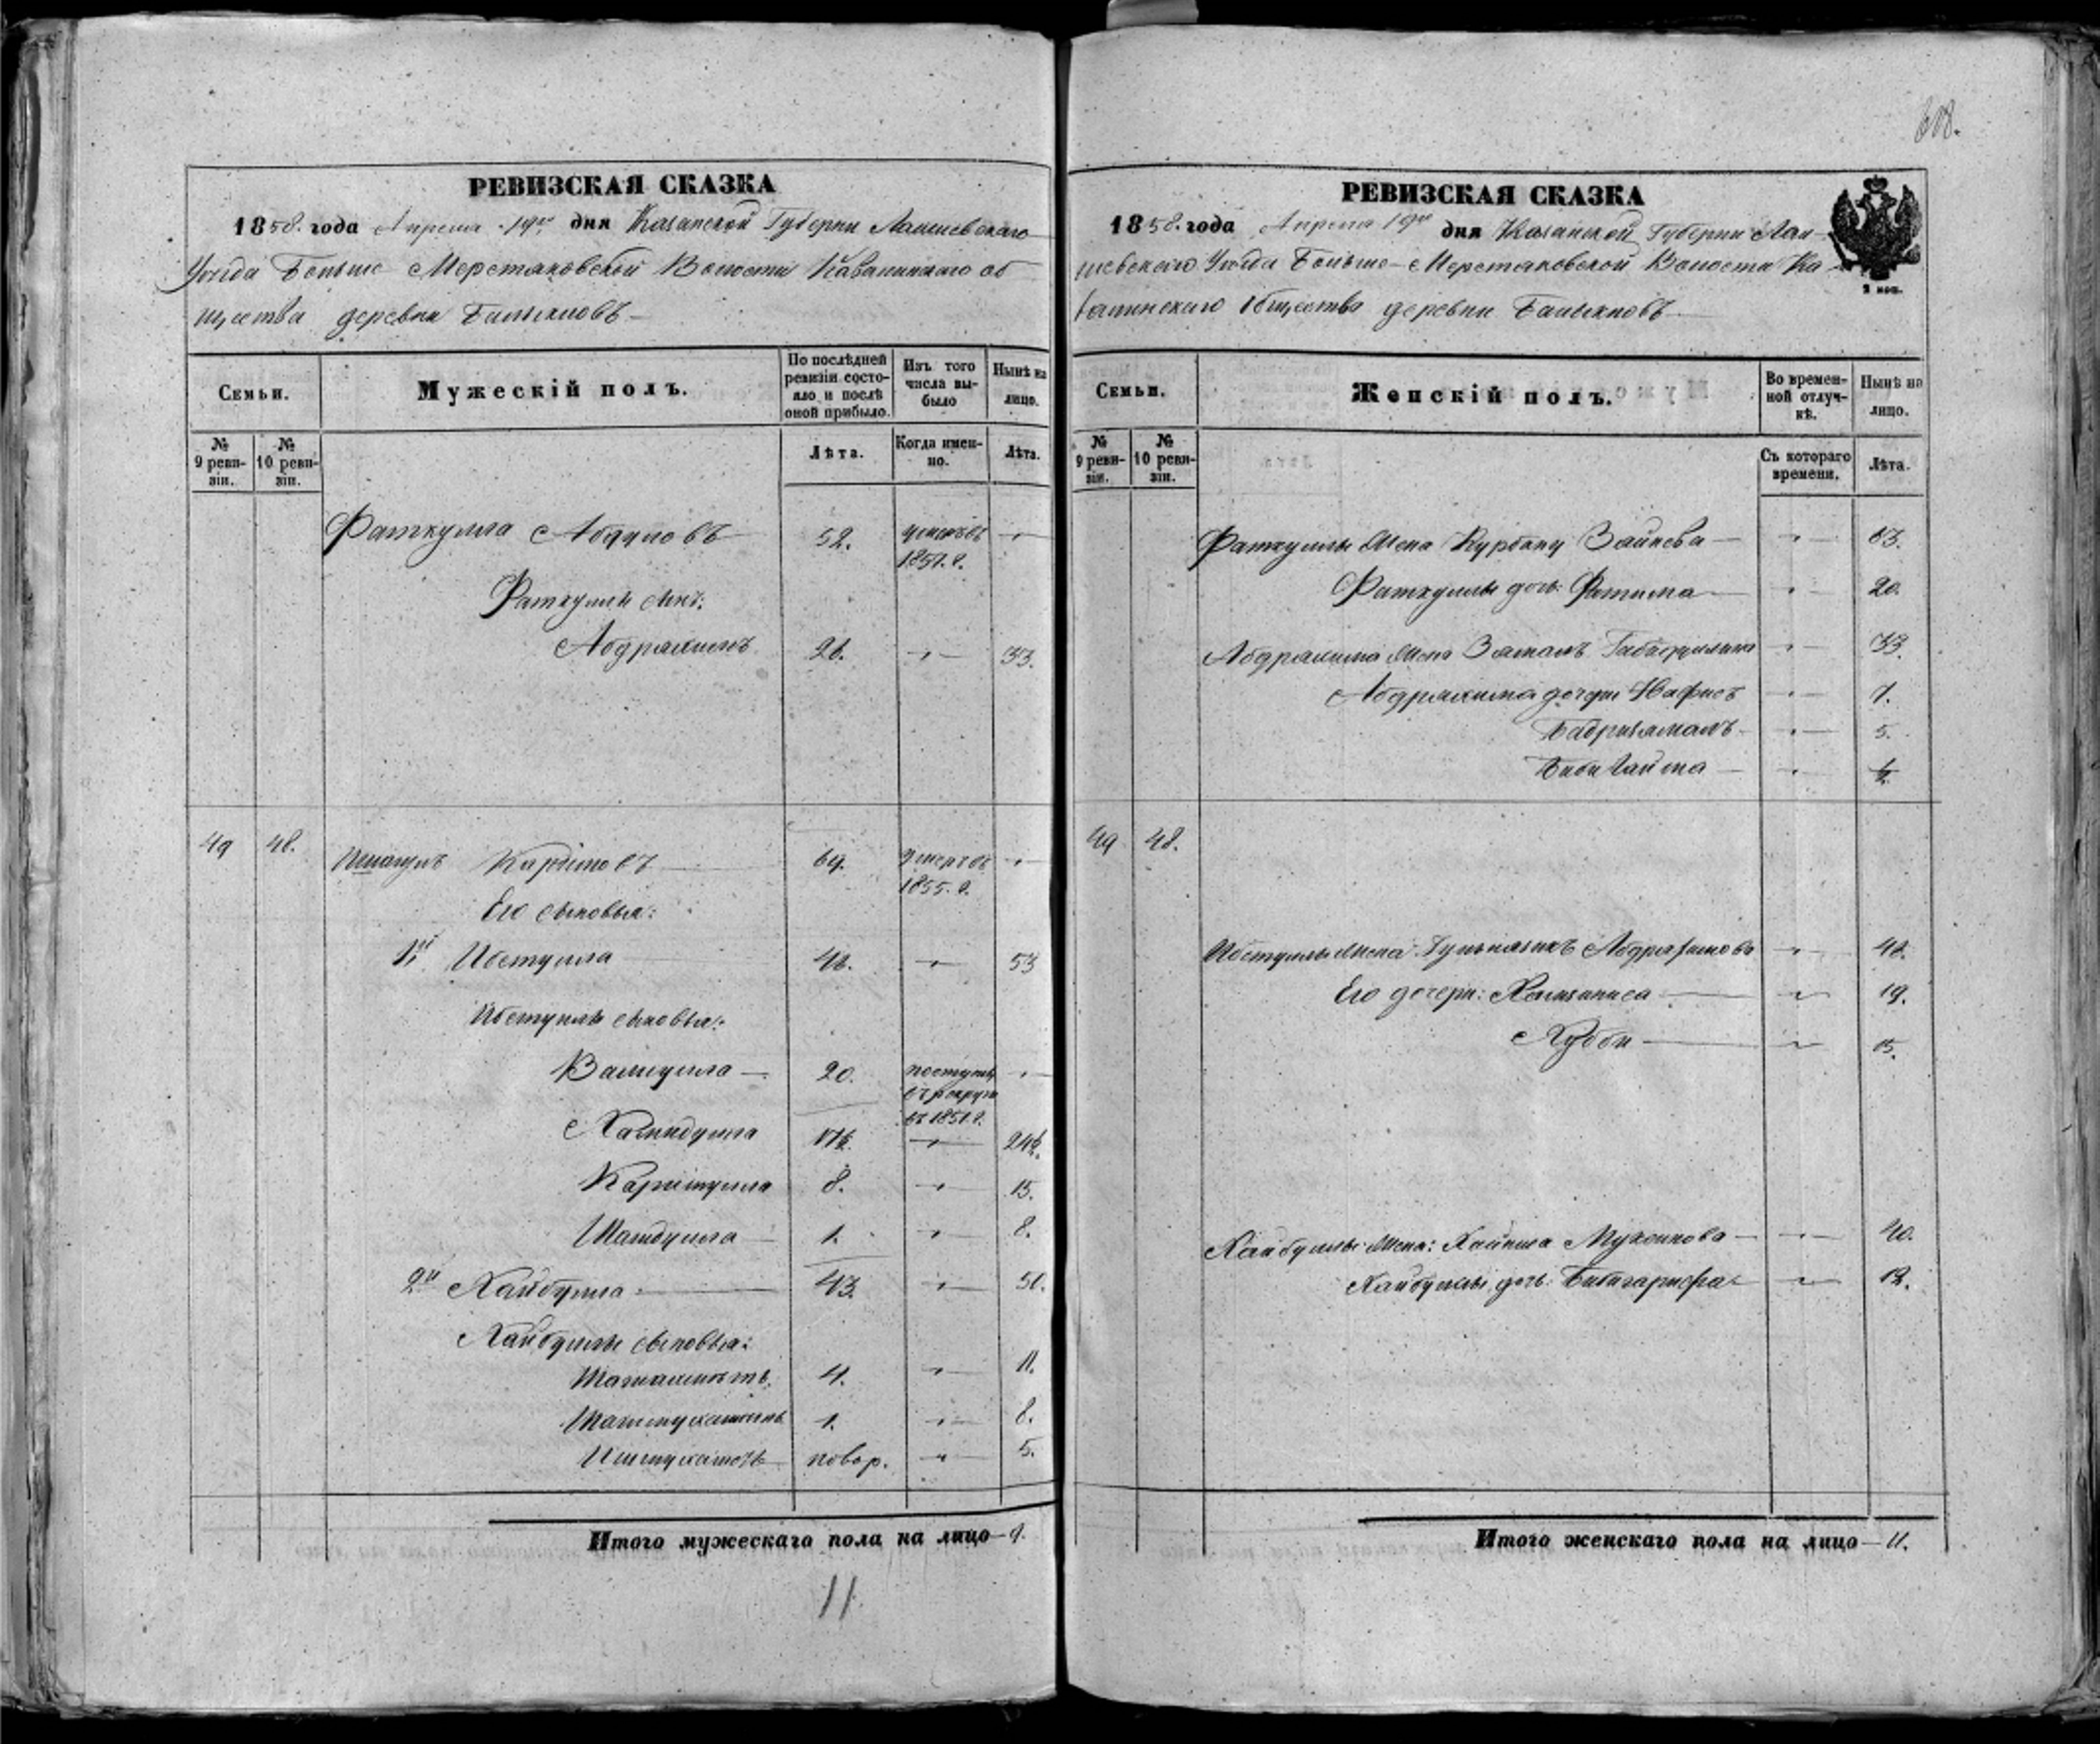 РЕВИЗСКАЯ СКАЗКА
1858. года Апреля 19го дня Казанской Губернии Лаишевскаго
Уѣзда Больше Меретяковской Волости Кавалинскаго об
щества деревни Балыкловъ
Семьи.
Мужескій полъ.
По послѣдней ревизіи состояло и послѣ оной прибыло.
Изъ того числа выбыло
Нынѣ на лицо.
№ 9 ревизіи.
№ 10 ревизіи.
Лѣта.
Когда именно.
Лѣта.
Фаткулла Абдуловъ 52. умеръ въ 1851. г. "
Фаткуллы сынъ:
Абдрахимъ 26. " 33.
49 48. Карімовъ 69. умеръ въ 1855. г. "
Его сыновья:
1й Ибетулла 46. " 53
Ибетуллы сыновья:
Валиулла 20. поступ. въ рекрут въ 1851. г. "
Хамидулла 17. " 24.
Каримулла 8. " 15.
Шагидулла 1. " 8.
2й Хайбулла 43. " 50.
Хайбуллы сыновья:
Шагиахметъ 4. " 11.
Шагимухаметъ 1. " 8.
Ишмухаметъ новор. " 5.
Итого мужескаго пола на лицо 9.
11.
608.
РЕВИЗСКАЯ СКАЗКА
1858. года Апреля 19го дня Казанской Губерніи Лаи
шевскаго Уѣзда Больше-Меретяковской Волости Ка
валинскаго общества деревни Балыкловъ
2 коп.
Семьи.
Женскій полъ.
Во временной отлучкѣ.
Нынѣ на лицо.
№ 9 ревизіи.
№ 10 ревизіи.
Съ котораго времени.
Лѣта.
Фаткуллы жена Курбану Заитева " 63.
Фаткуллы дочь: Фатима " 20.
Абдрахима жена Замалъ " 33.
Абдрахима дочери Нафиса " 7.
Бадриямалъ " 5.
Биби "
49 48.
Ибетуллы жена Гульназикъ Абдразякова " 48.
Его дочери: " 19.
Хубби " 15.
Хайбуллы жена: Ханиса Мухаинова " 40.
Хайбуллы дочь: Бибигарифа " 12.
Итого женскаго пола на лицо 11.